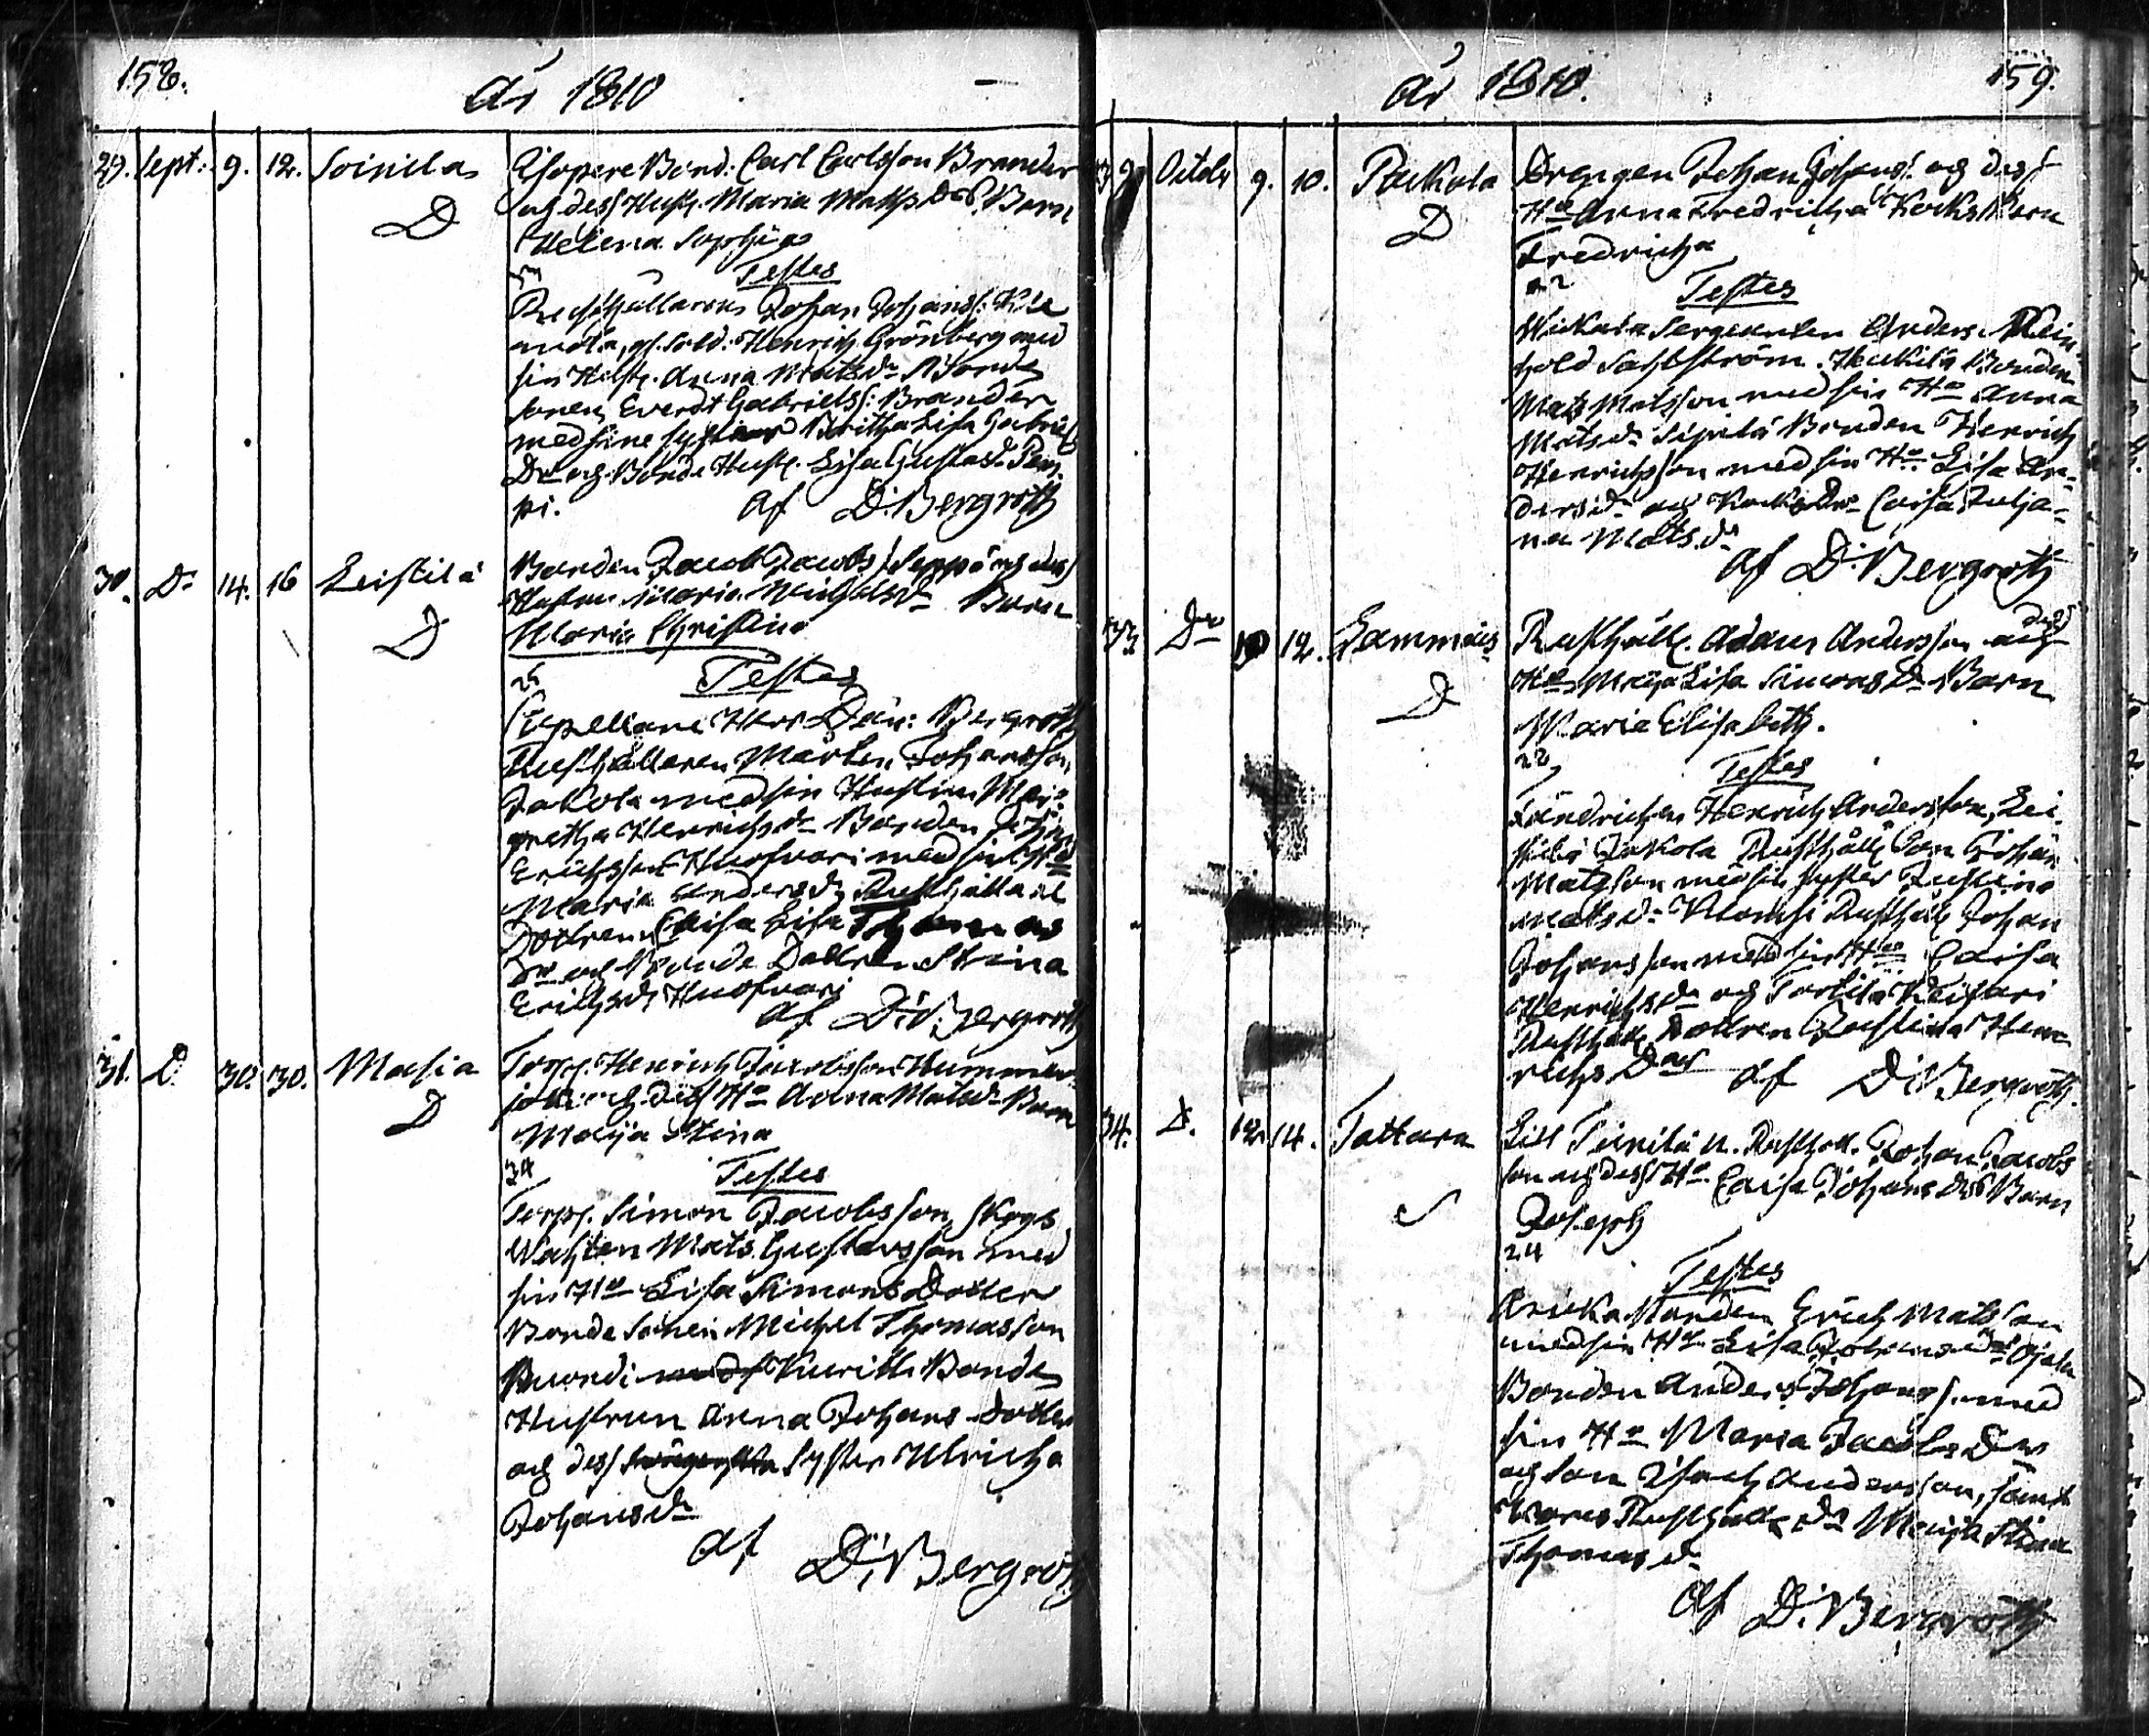 158.
År 1810
29. Sept: 9. 12. Soinila
D
Bond: Carl Carlsson Brander
och dess Hust. Maria Matts Dr. Barn
Helena Sophia
Testes
Rusthållaren Johan Johanss:
gl. Sold. Henrich Grönberg med
sin Hust. Anna Matsdr Bonde
sonen Everdt Gabrielss: Brander
med sine Britha Lisa Gabriels
Dr och Bonde Hust. Lisa Gustafsd.
pi.
af D. Bergroth
30. Do 14. 16 Leistilä
D
Bonden Jacob Jacobs. Seppä och dess
Hustru Maria Michelsdr Barn
Maria Christina
25
Testes
Capellane Herr Dan: Bergroth
Rusthållaren Marten Johansson
Jakola med sin Hustru Mar-
gretha Henrichsdr Bonden Johan
Erichsson Huofvari med sin Ho
Maria Andersdr Rusthållare
Dottren Caisa Lisa Thomas
Dr och Bonde Dottren Stina
Erichsdr Huofvari
af D. Bergroth
31. D. 30. 30. Masia
D
Torp. Henrich Jacobsson Hummer
och dess Ho Anna Matsdr Barn
Maija Stina
34
Testes
Torp. Simon Jacobsson, Skogs
Wakten Mats Gustavsson med
sin Ho Lisa Simons Dotter
Bonde Sonen Michel Thomasson
Kurittu Bonde
Hustrun Anna Johans dotter
och dess Syster Ulricha
Johansdr
af D. Bergroth
År 1810.
159.
Octobr 9. 10. Paukola
D
Drengen Johan Johans: och dess
Ho Anna Fredricha Barn
Fredricha
22
Testes
Sergeanten Anders Rein-
hold Sahlström. Heikilä Bonden
Mats Matsson med sin Ho Anna
Matsdr Sipilä Bonden Henrich
Henrichsson med sin Ho Lisa An-
dersdr och Caisa Julja-
na Matsdr
af D. Bergroth
33 Do 10 12. Lammais
D
Rusthåll. Adam Andersson och dess
Ho Maja Lisa Simons Dr Barn
Maria Elisabeth.
22
Testes
Ländrichen Henrich Andersson, Lei-
stilä Jakola Rusthåll Son Johan
Matsson med sin syster Justina
Matsdr Rusthåll Johan
Johansson med sin Ho Caisa
Henrichsdr och Tortila Keisari
Rusthåll Dottren Justina Hen-
richs Dr af D. Bergroth.
34. D. 12. 14. Tattara
S
Lill Rusthåll. Johan Jacobs
son och dess Ho Caisa Johans Dr Barn
Joseph
24
Testes
Bonden Erich Matsson
med sin Ho Lisa Johansdr Ojala
Bonden Anders Johans: med
sin Ho Maria Jacobs Dr
och Son Isach Andersson, samt
Rusthåll Dr Maija Stina
Thomasdr
af D. Bergroth